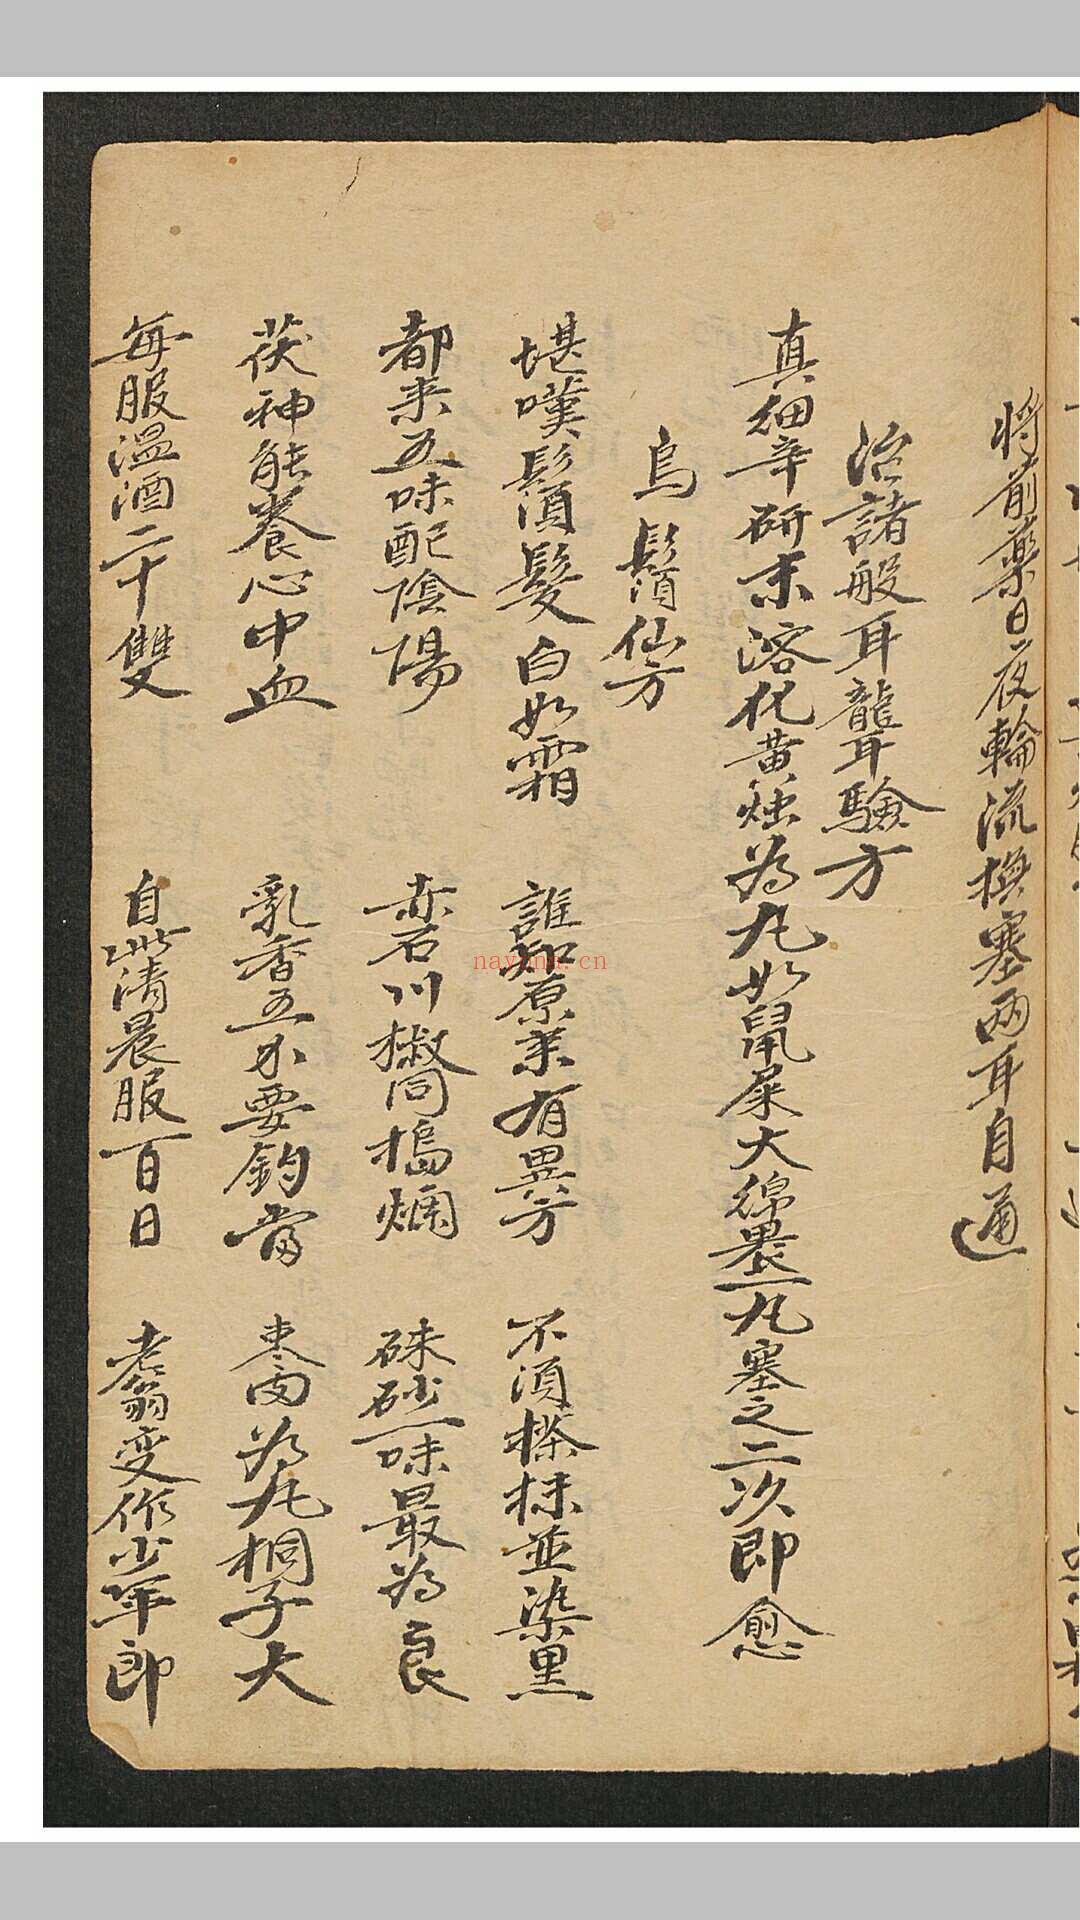 将前藥日夜輪流換塞兩耳自通
治諸般耳聾耳驗方
真細辛研末溶化黄烛為丸如鼠屎大綿裹一丸塞之二次即愈
烏鬚仙方
堪嘆鬚髮白如霜 誰知原来有異方 不須搽抹並染黑
都来五味配陰陽 赤石川椒同搗爛 硃砂一味最為良
茯神能養心中血 乳香五不要鈞當 枣肉為丸桐子大
每服温酒二十雙 自此清晨服百日 老翁变作少年郎
nayona.cn